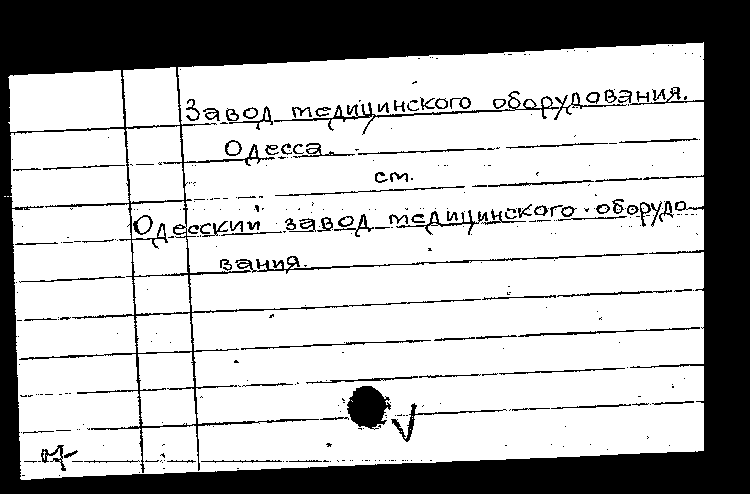 Завод медицинского оборудования.
Одесса.
см.
Одесский завод медицинского оборудо-
вания.